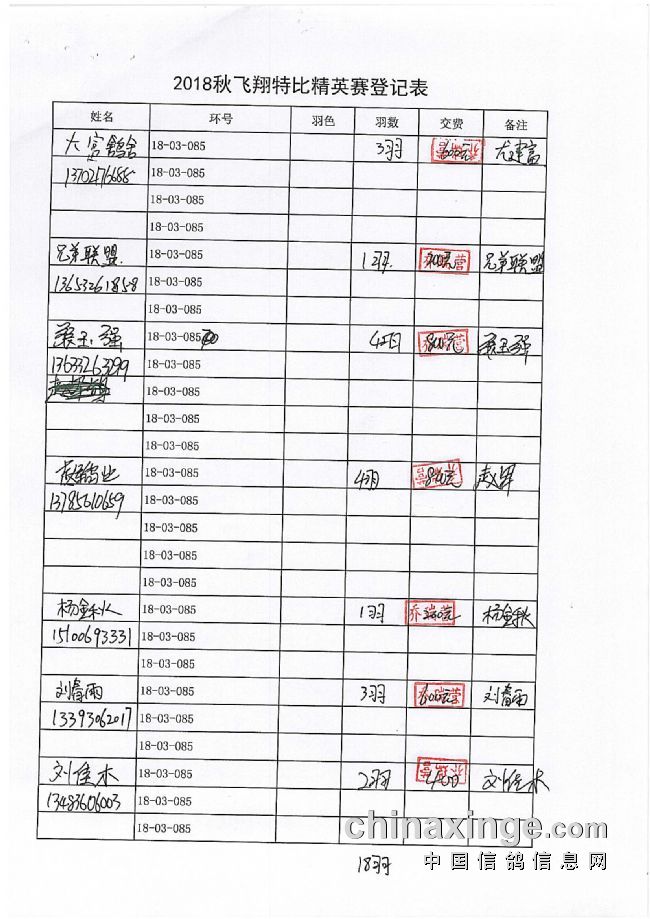 2018秋飞翔特比精英赛登记表
姓名 环号 羽色 羽数 交费 备注
大富鸽舍 18-03-085 3羽 600元 尤建富
13702476688 18-03-085
18-03-085
18-03-085
兄弟联盟 18-03-085 1羽 200元 兄弟联盟
13653261858 18-03-085
18-03-085
18-03-085 4羽 800元
13633263299 18-03-085
18-03-085
18-03-085
18-03-085
18-03-085 4羽 800元 赵军
13785610659 18-03-085
18-03-085
18-03-085
18-03-085
杨金秋 18-03-085 1羽 乔瑞营 杨金秋
15100693331 18-03-085
18-03-085
刘春雨 18-03-085 3羽 600元 刘春雨
13393062017 18-03-085
18-03-085
刘佳木 18-03-085 2羽 400 刘佳木
13483606003 18-03-085
18-03-085
18羽
chinaxinge.com
中国信鸽信息网